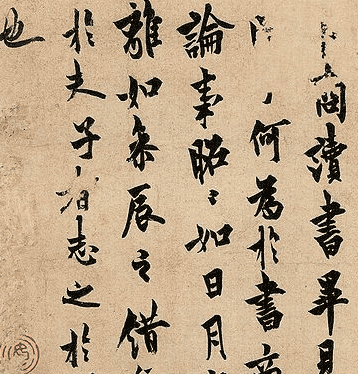 商讀書畢見
何為於書商
論事昭〻如日月
離如參辰之錯
於夫子者志之於
也